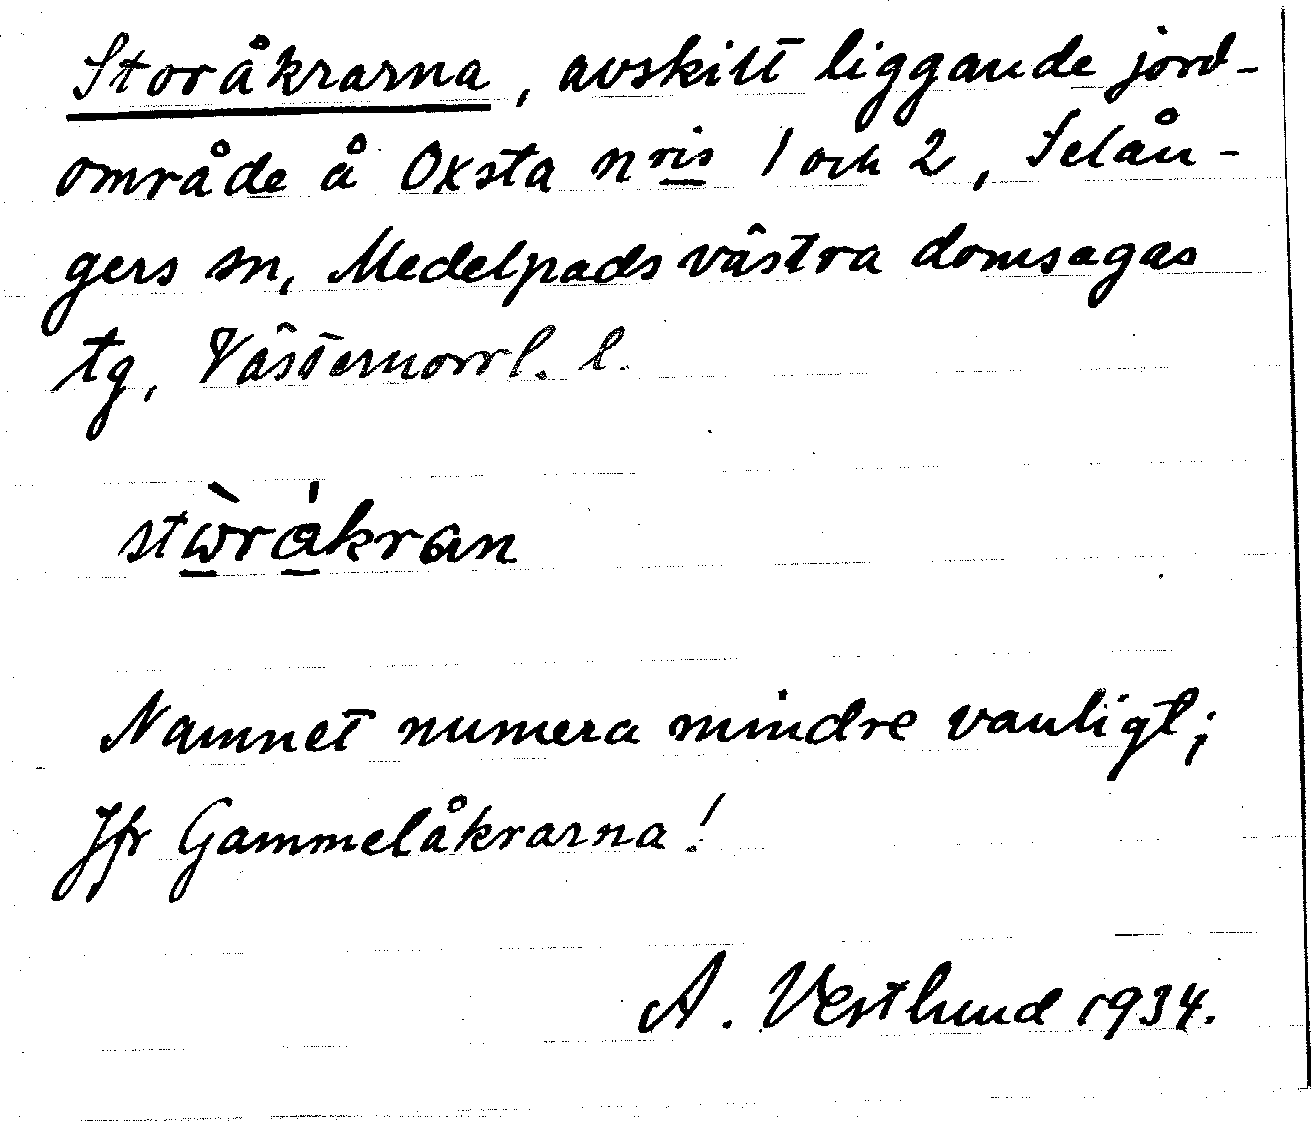 Storåkrarna, avskilt liggande jord-
område å Oxsta nris 1 och 2, Selån-
gers sn, Medelpads västra domsagas
tg, Västernorrl. l.
stὼ̲rά̲kran
Namnet numera mindre vanligt;
Jfr Gammelåkrarna!
A. Vestlund 1934.